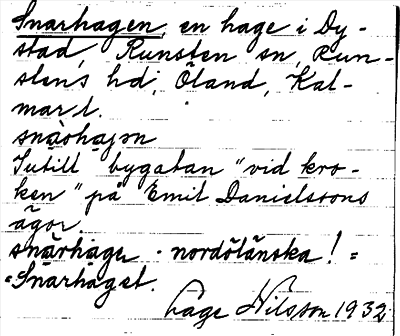 Snarhagen, en hage i Dy-
stad, Runsten sn, Run-
stens hd, Öland, Kal-
mar l.
snàrhàgən
Intill bygatan "vid kro-
ken" på Emil Danielssons
ägor.
snarhage · nordöländska! =
= Snarhaget.
Låge Nilsson 1932